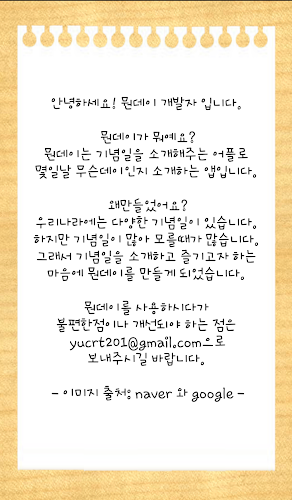 안녕하세요! 뭔데이 개발자 입니다.
뭔데이가 뭐예요?
뭔데이는 기념일을 소개해주는 어플로
몇일날 무슨데이인지 소개하는 앱입니다.
왜만들었어요?
우리나라에는 다양한 기념일이 있습니다.
하지만 기념일이 많아 모를때가 많습니다.
그래서 기념일을 소개하고 즐기고자 하는
마음에 뭔데이를 만들게 되었습니다.
뭔데이를 사용하시다가
불편한점이나 개선되야 하는 점은
yucrt201@gmail.com으로
보내주시길 바랍니다.
- 이미지 출처: naver 와 google -